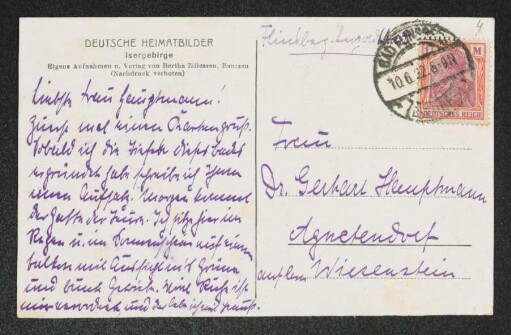 DEUTSCHE HEIMATBILDER
Isergebirge
Eigene Aufnahmen u. Verlag von Bertha Zillessen, Bautzen
(Nachdruck verboten)
Liebste Frau Hauptmann!
Zuerst mal einen Kartengruß.
Sobald ich die Tiefe dieses Bades
ergründet habe schreibe ich Ihnen
einen Aufsatz. Morgen kommt
der Gatte der Frau. Ich sitze hier im
Regen u. im Sonnenschein auf einem
Balkon mit Aussicht ins Grüne
und
mir verordnet und das
Flinsberg
10.6.22.8-9N
M
DEUTSCHES REICH
4
Frau
Dr. Gerhart Hauptmann
Agnetendorf
auf dem Wiesenstein